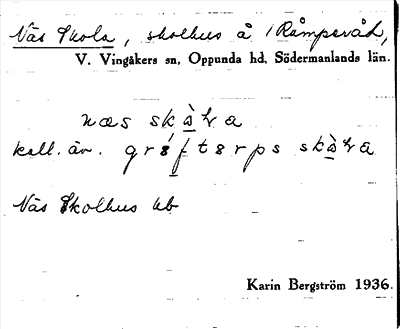 Näs Skola, skolhus å Råmpevåd,
V. Vingåkers sn, Oppunda hd, Södermanlands län.
næs skåla
kall. äv. grøftørps skåla
Näs Skolhus kb
Karin Bergström 1936.